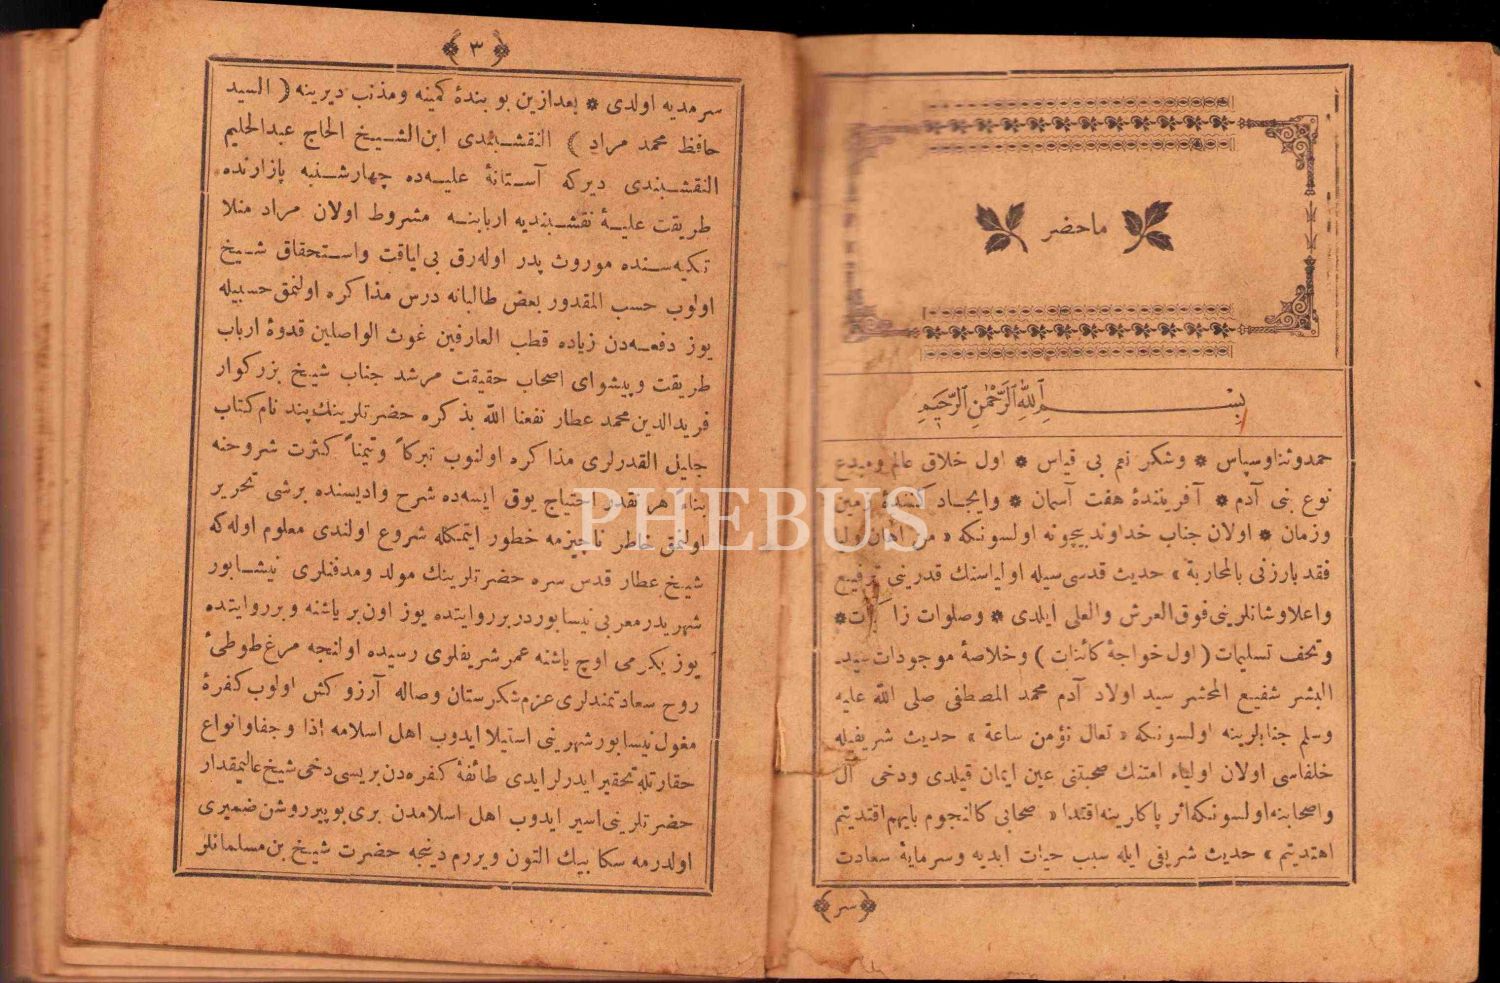 ماحضر
بِسْمِ ٱللّٰهِ ٱلرَّحْمٰنِ ٱلرَّحِيمِ
حمدوثناوسپاس * وشكر نعم بى قياس * اول خلاق عالم ومبدع
نوع بنى آدم * آفرينندهٔ هفت آسمان * وايجاد كنندهٔ زمين
وزمان * اولان جناب خداوند بيچونه اولسونكه « من أهان وليا
فقد بارزنى بالمحاربة » حديث قدسى سيله اولياسنك قدرينى ترفيع
واعلاوشانلرينى فوق العرش والعلى ايلدى * وصلوات زا ت *
وتحف تسليمات ( اول خواجهٔ كائنات ) وخلاصهٔ موجودات سيد
البشر شفيع المحشر سيد اولاد آدم محمد المصطفى صلى الله عليه
وسلم جنابلرينه اولسونكه « تعال نؤمن ساعة » حديث شريفيله
خلفاسى اولان اولياء امتنك صحبتنى عين ايمان قيلدى ودخى آل
واصحابنه اولسونكه اثر پاكارينه اقتدا « صحابى كالنجوم بايهم اقتديتم
اهتديتم » حديث شريفى ايله سبب حيات ابديه وسرمايهٔ سعادت
سر
٣
سرمديه اولدى * بعدازين بو بندهٔ كمينه ومذنب ديرينه ( السيد
حافظ محمد مراد ) النقشبندى ابن الشيخ الحاج عبدالحليم
النقشبندى ديركه آستانهٔ عليه‌ده چهارشنبه پازارنده
طريقت عليهٔ نقشبنديه اربابنه مشروط اولان مراد منلا
تكيه‌سنده موروث پدر اوله‌رق بى لياقت واستحقاق شيخ
اولوب حسب المقدور بعض طالبانه درس مذاكره اولنمق حسبيله
يوز دفعه‌دن زياده قطب العارفين غوث الواصلين قدوهٔ ارباب
طريقت وپيشواى اصحاب حقيقت مرشد جناب شيخ بزركوار
فريدالدين محمد عطار نفعنا الله بذكره حضرتلرينك پند نام كتاب
جليل القدرلرى مذاكره اولنوب تبركاً وتيمناً كثرت شروحنه
بناءً هر نقدر احتياج يوق ايسه‌ده شرح واديسنده برشى تحرير
اولنمق خاطر ناچيزمه خطور ايتمكله شروع اولندى معلوم اوله‌كه
شيخ عطار قدس سره حضرتلرينك مولد ومدفنلرى نيشابور
شهريدر معربى نيسابوردر برروايتده يوز اون بر ياشنه وبرروايتده
يوز يكرمى اوچ ياشنه عمر شريفلرى رسيده اولنجه مرغ طوطىٔ
روح سعادتمندلرى عزم شكرستان وصاله آرزوكش اولوب كفرهٔ
مغول نيسابور شهرينى استيلا ايدوب اهل اسلامه اذا وجفا وانواع
حقارتله تحقير ايدرلر ايدى طائفهٔ كفره‌دن بريسى دخى شيخ عاليمقدار
حضرتلرينى اسير ايدوب اهل اسلامدن برى بو پير روشن ضميرى
اولدرمه سكا بيك التون ويررم دينجه حضرت شيخ بن مسلمانلر
PHEBUS